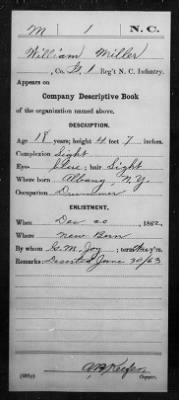 M 1 N.C.
William Miller
, Co. G, 1 Reg't N. C. Infantry.
Appears on
Company Descriptive Book
of the organization named above.
DESCRIPTION.
Age 18 years; height 4 feet 7 inches.
Complexion Light
Eyes Blue; hair Light
Where born Albany, N.Y.
Occupation Drummer
ENLISTMENT.
When Dec 20, 1862.
Where New Bern
By whom G. M. Joy; term y'rs.
Remarks Deserted June 30/63
Copyist.